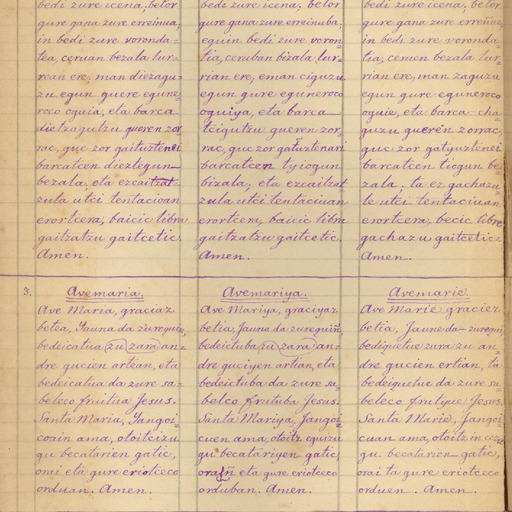 bedi zure icena, betor
gure gana zure erreinua,
in bedi zure voronda-
tea, ceruan bezala lur-
rean ere, man diezagu-
zu egun guere egune-
roco oguia, eta barca
dietzagutzu gueren zor
rac, guc zor gaituztenei
barcatcen dieztegun
bezala, eta ezcaitzat-
zula utci tentacioan
erortcera, baicic libra
gaitzatzu gaitcetic.
Amen.
bedi zure icena, betor
gure gana zure erreinuba,
eguin bedi zure voron-
tia, ceruban bizala, lur-
rian ere, eman ciguzu
egun gure eguneroco
oguiya, eta barca
tcigutzu gueren zor
rac, guc zor gaituztenari
barcatcen tyiogun
bizala, eta ezcaitzat
zula utci tentaciuan
erortcera, baicic libra
gaitzatzu gaitcetic.
Amen.
bedi zure icena, betor
gure gana zure erreñue,
in bedi zure voronda-
tia, ceruen bezala lur-
rian ere, man zaguzu
egun gure eguneroco
oguie, eta barca cha-
guzu querén zorrac,
guc zor gatyuztenei
barcatcen tiogun be-
zala, ta ez gachazu-
le utci tentaciuan
erortcera, becic libre
gachazu gaitcetic.
Amen.
3. Avemaria.
Ave Maria, graciaz
betea, Jauna da zurequin,
bedeicatua zu zara an-
dre gucien artean, eta
bedeicatua da zure sa-
beleco fruitua Jesus.
Santa Maria, Jangoi-
coain ama, otoitcizu
gu becatarien gatic,
orai eta gure eriotceco
orduan. Amen.
Avemariya.
Ave Mariya, graciyaz
betia, Jauna da zurequiñ,
bedeictuba zu zara an-
dre guciyen artian, eta
bedeictuba da zure sa-
belco frutuba Jesus.
Santa Mariya, Jangoi-
cuen ama, otoitz eguzu
gu becatariyen gatic,
orain eta gure eriotceco
orduban. Amen.
Avemarie.
Ave Marie graciez
betia, Jaune da zurequin,
bedeiquetue zara zu an-
dre gucien ertian, ta
bedeiquetue da zure sa-
beleco frutue Jesus.
Santa Marie, Jangoi-
cuan ama, otoitz in
gu becatarien gatic,
orai ta gure eriotceco
orduen. Amen.